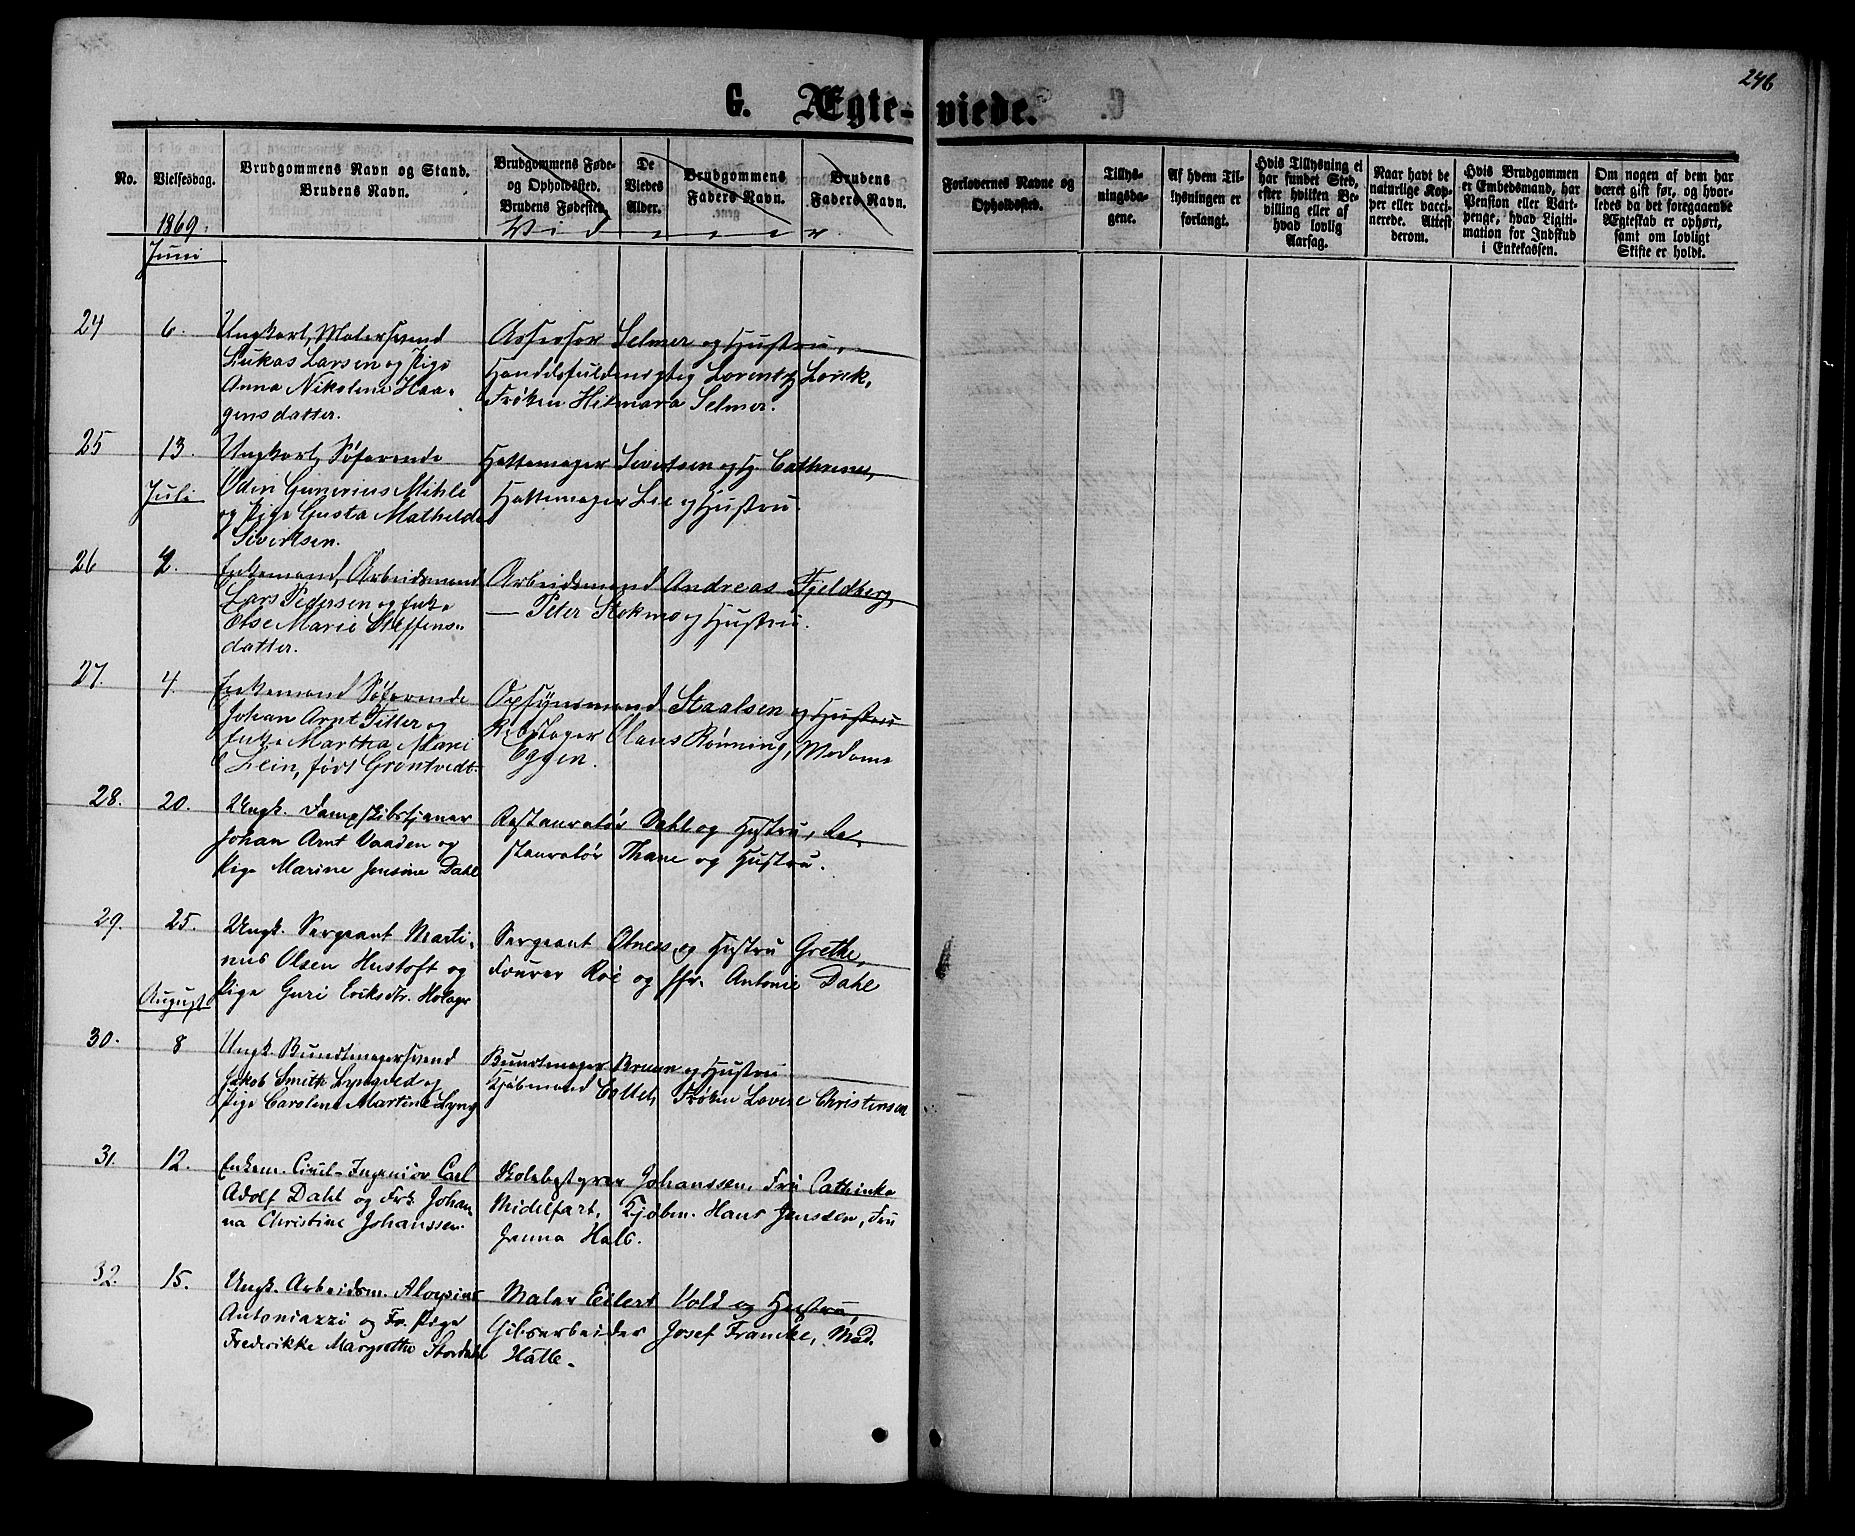 246
G. Ægteviede.
No.
Vielsesdag.
Brudgommens Navn og Stand.
Brudens Navn.
Brudgommens Føde-
og Opholdssted.
Brudens Fødested.
De
Viedes
Alder.
Brudgommens
Faders Navn.
Brudens
Faders Navn.
Forlovernes Navne og
Opholdssted.
Tillys-
ningsda-
gene.
Af hvem Til-
lysningen er
forlangt.
Hvis Tillysning ei
har fundet Sted,
efter hvilken Be-
villing eller af
hvad lovlig
Aarsag.
Naar havt de
naturlige Kop-
per eller vacci-
nerede. Attest
derom.
Hvis Brudgommen
er Embedsmand, har
Pension eller Vart-
penge, hvad Ligiti-
mation for Indskud
i Enkekassen.
Om nogen af dem har
været gift før, og hvor-
ledes da det foregaaende
Ægteskab er ophørt,
samt om lovligt
Skifte er holdt.
Vidner.
1869.
Juni
24 6. Ungkarl, Malersvend
Lukas Larsen og Pige
Anna Nikoline Haa-
gensdatter.
Assessor Selmer og Hustru,
Handelsfuldmægtig Lorentz Lorck,
Frøken Hilmara Selmer.
25 13. Ungkarl, Søfarende
Odin Gunerius Mihle
og Pige Gusta Mathilde
Sivertsen.
Hattemager Sivertsen og H. Cathrine,
Hattemager Lie og Hustru.
Juli
26 2. Enkemand, Arbeidsmand
Lars Pedersen og Enke
Else Marie Steffens-
datter.
Arbeidsmand Andreas Fjeldberg
— Peter Stokmo og Hustru.
27. 4. Enkemand Søfarende
Johan Arnt Tiller og
Enke Martha Marie
Lein, født Grøntvedt.
Opsynsmand Staalsen og Hustru
Rebslager Olaus Rønning, Madame
Eggen.
28. 20. Ungk. Dampskibstjener
Johan Arnt Vaaden og
Pige Marine Jensine Dahl
Restauratør Dahl og Hustru, Re-
stauratør Thane og Hustru.
29. 25. Ungk. Sergeant Marti-
nus Olsen Hustoft og
Pige Guri Eriksdtr. Holager
Sergeant Otness og Hustru Grethe,
Fourer Roe og Jfr. Antonie Dahl
August
30. 8 Ungk. Bundtmagersvend
Jakob Smith Lyngved og
Pige Caroline Martine Lyng
Bundtmager Bruun og Hustru
Kjøbmand Frøken Lovise Christensen
31. 12. Enkem. Civil-Ingeniør Carl
Adolf Dahl og Frk. Johan-
na Christine Johanssen.
Skolebestyrer Johanssen, Fru Cathinka
Midelfart, Kjøbm. Hans Jenssen, Fru
Jenna
32. 15. Ungk. Arbeidsm. Aloysius
Antoniazzi og Pige
Frederikke Margrethe Stordahl
Maler Eilert Vold og Hustru,
Gibsarbeider Josef Francke, Mad.
Halle.